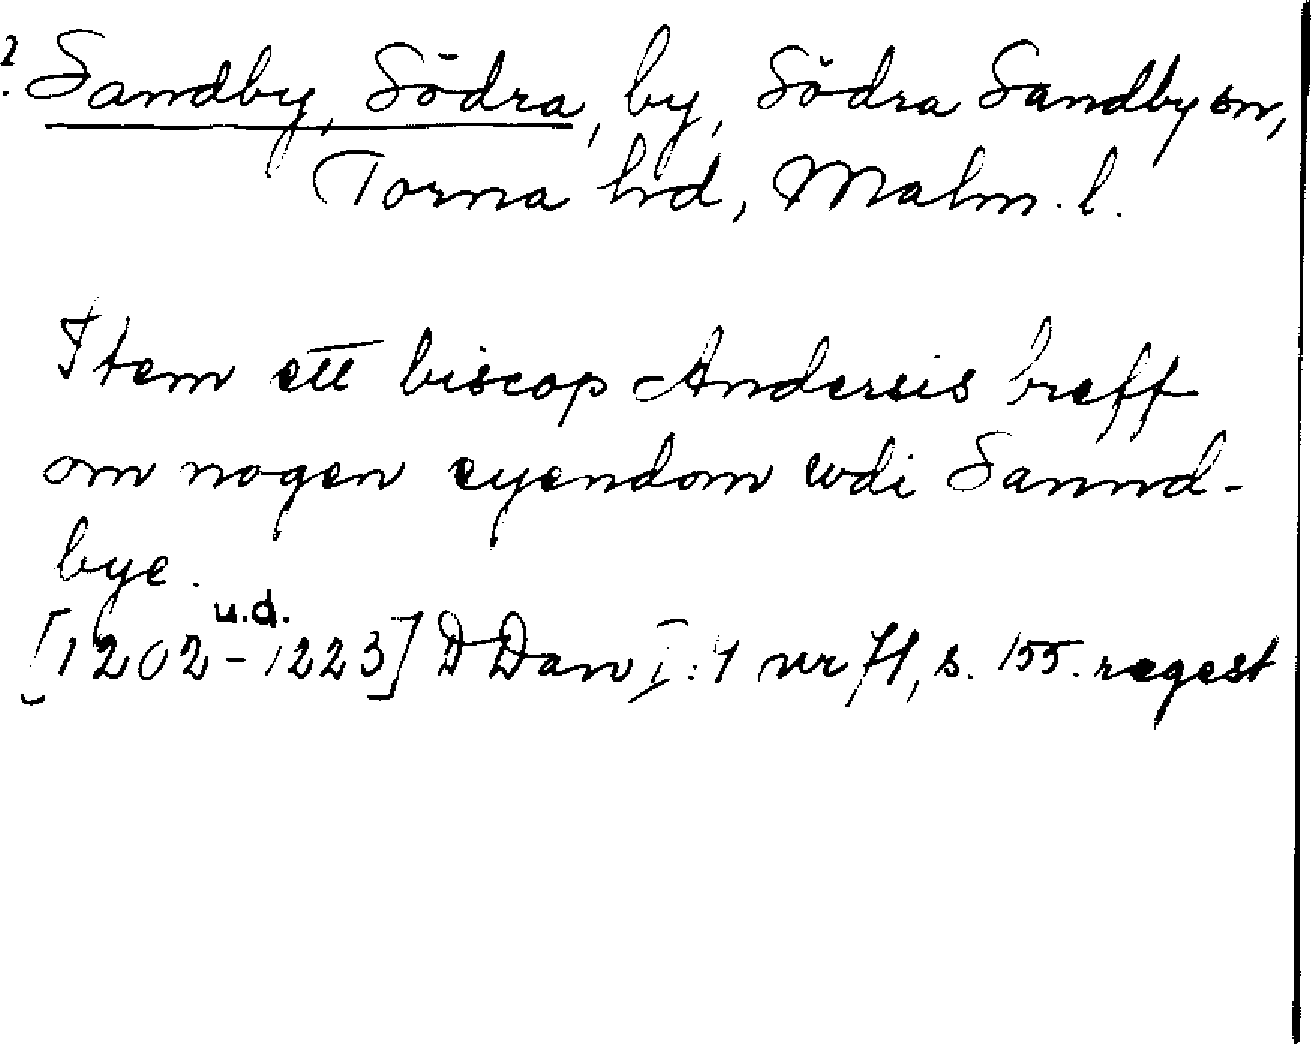 ? Sandby, Södra, by, Södra Sandby sn,
Torna hd, Malm. l.
Item ett biscop Andersis breff
om nogen eyendom wdi Sannd-
bye.
u.d.
[1202-1223] D Dan I:4 nr 71, s. 155. regest